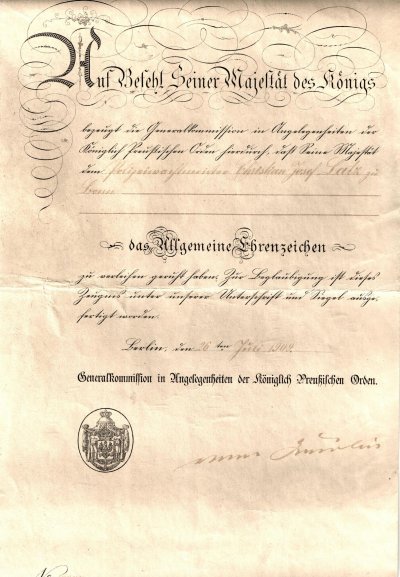 Auf Befehl Seiner Majestät des Königs
bezeugt die Generalkommission in Angelegenheiten der
Königlich Preußischen Orden hierdurch, daß Seine Majestät
dem Polizeiwachtmeister Christian Josef zu
Bonn
das Allgemeine Ehrenzeichen
zu verleihen geruht haben. Zur Beglaubigung ist dieses
Zeugnis unter unserer Unterschrift und Siegel ausge-
fertigt worden.
Berlin, den 26ten Juli 1909.
Generalkommission in Angelegenheiten der Königlich Preußischen Orden.